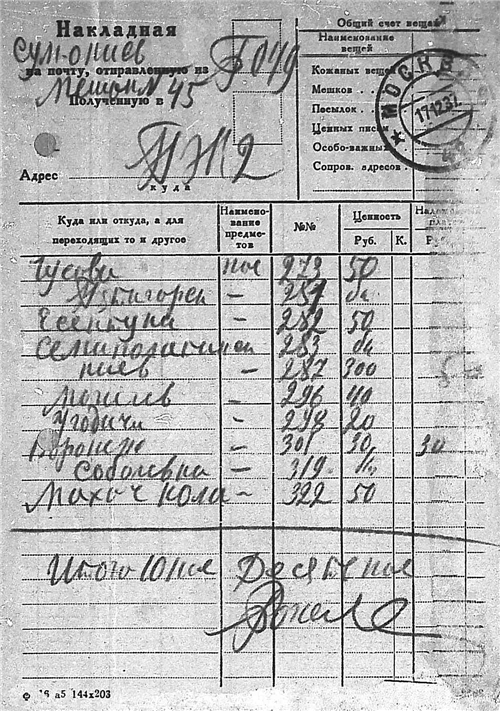 Накладная
на почту, отправленную из Г 049
Мешок № 45
Полученную в
ПЖ 2
Адрес
куда
Общий счет вещам
Наименование вещей
Кожаных вещей
Мешков . .
Посылок . .
Ценных писем
Особо-важных
Сопров. адресов .
МОСКВА
17 12 37
Куда или откуда, а для переходящих то и другое
Наименование предметов
№№
Ценность
Руб. К.
Гусеви пос 273 50
Пятигорск — 281
Есентуки — 282 50
Семиполатинск 283
Киев — 287 300
Могилев — 296 40
Угодичи — 298 20
Воронеж — 301 30 30
Соболевка — 319
Махачкола — 322 50
Итого 10 пос Десять пос
ф 16 а5 144х203